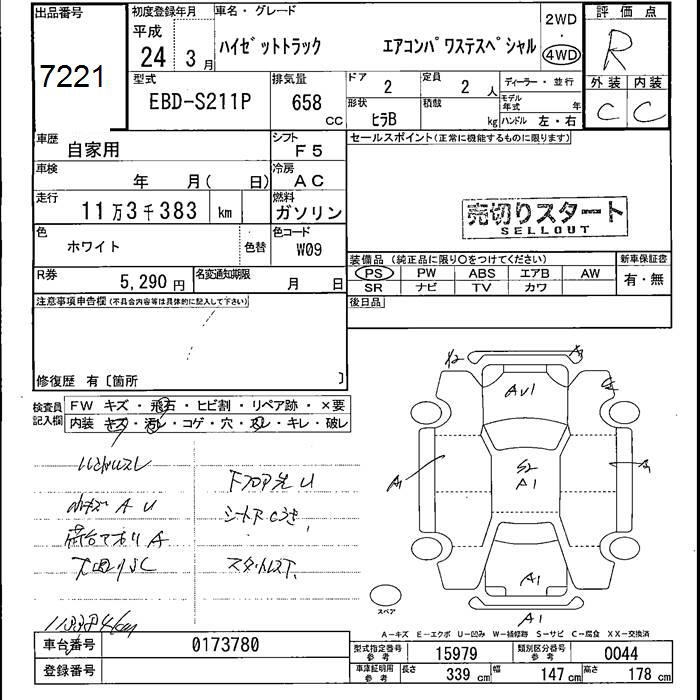 出品番号
7221
初度登録年月
平成
24 3 月
車名・グレード
ハイゼットトラック エアコンパワステスペシャル
2WD
・
4WD
評価点
R
外装 内装
C C
型式
EBD-S211P
排気量
658
CC
ドア
2
定員
2 人
形状
ヒラB
積載
kg
ディーラー・並行
モデル年式 年
ハンドル 左・右
車歴
自家用
シフト
F5
車検
年 月( 日)
冷房
AC
走行
11万3千383 km
燃料
ガソリン
色
ホワイト
色替
色コード
W09
R券
5,290 円
名変通知期限
月 日
セールスポイント(正常に機能するものに限ります)
売切りスタート
SELLOUT
装備品(純正品に限り○をつけてください)
PS PW ABS エアB AW
SR ナビ TV カワ
新車保証書
有・無
後日品
注意事項申告欄(不具合内容等は具体的に記入して下さい)
修復歴 有〔箇所 〕
検査員記入欄
FW キズ・飛石・ヒビ割・リペア跡・×要
内装 キズ・汚レ・コゲ・穴・スレ・キレ・破レ
A1
AV1
A1
A1
S2
A1
A1
A1
スペア
A-キズ E-エクボ U-凹み W-補修跡 S-サビ C-腐食 XX-交換済
車台番号 0173780
登録番号
型式指定番号 参考 15979
類別区分番号 参考 0044
車庫証明用 参考 長さ 339 cm 幅 147 cm 高さ 178 cm